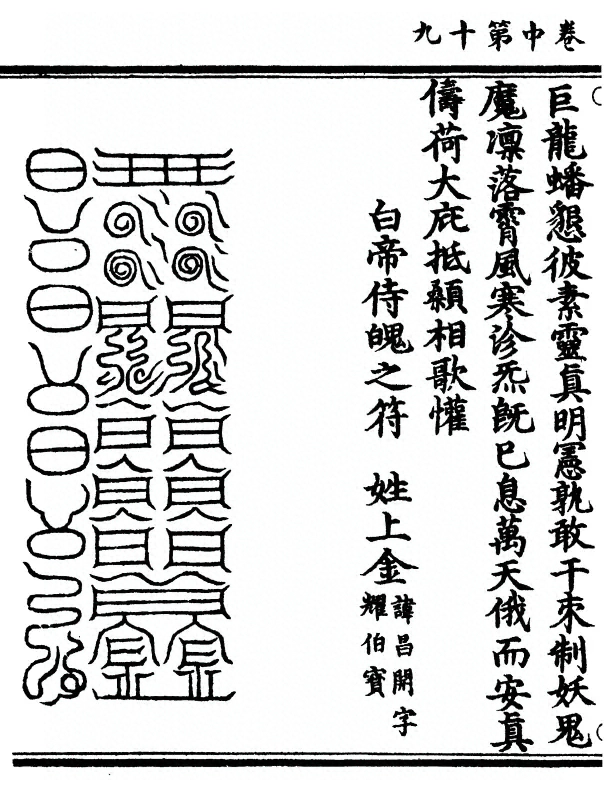 九十第中卷
巨龍蟠懇彼素靈真明憲孰敢干朿制妖鬼
魔凛落霄風寒診炁既已息萬天俄而安真
儔荷大庇抵顙相歌懽
白帝侍魄之符 姓上金
諱昌開字
耀伯寶